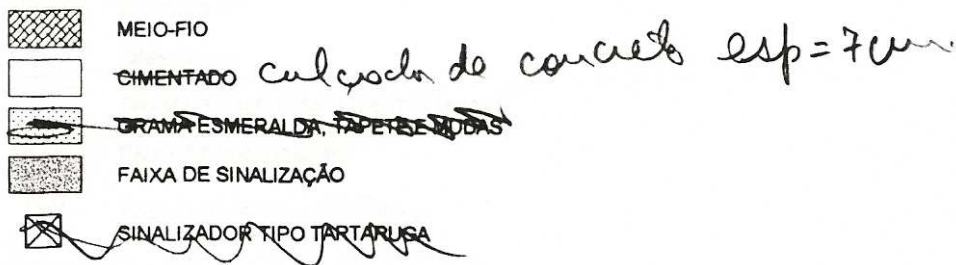 MEIO-FIO
CIMENTADO calçada de concreto esp=7cm
GRAMA ESMERALDA, TAPETE E MUDAS
FAIXA DE SINALIZAÇÃO
SINALIZADOR TIPO TARTARUGA